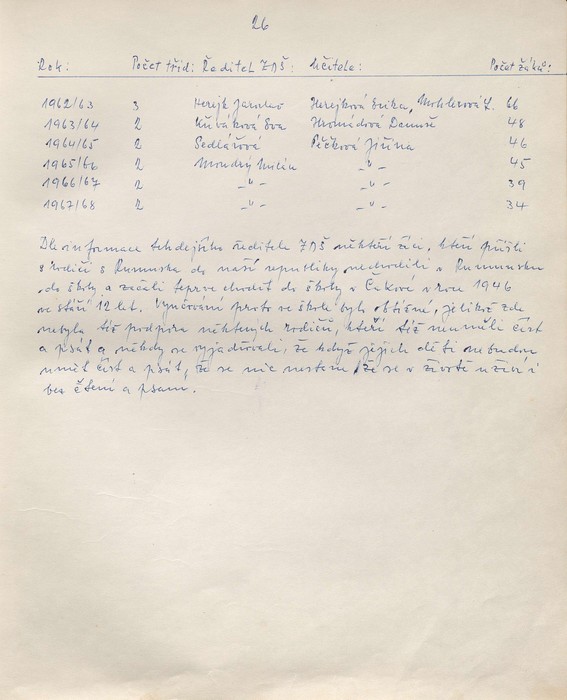 26
Rok: Počet tříd: Ředitel ZDŠ: Učitelé: Počet žáků:
1962/63 3 Herejk Jaroslav Herejková Erika, L. 66
1963/64 2 Křiváková Eva Hromádová Danuše 48
1964/65 2 Sedlářová Péčková Jiřina 46
1965/66 2 Moudrý Milán -"- 45
1966/67 2 -"- -"- 39
1967/68 2 -"- -"- 34
Dle informace tehdejšího ředitele ZDŠ někteří žáci, kteří přišli
s rodiči s Rumunska do naší republiky nechodili v Rumunsku
do školy a začali teprve chodit do školy v Čakově v roce 1946
ve stáří 12 let. Vyučování proto ve škole bylo obtížné, jelikož zde
nebyla též podpora některých rodičů, kteří též neuměli číst
a psát a někdy se vyjadřovali, že když jejich děti nebudou
umět číst a psát, že se nic nestane, že se v životě uživí i
bez čtení a psaní.